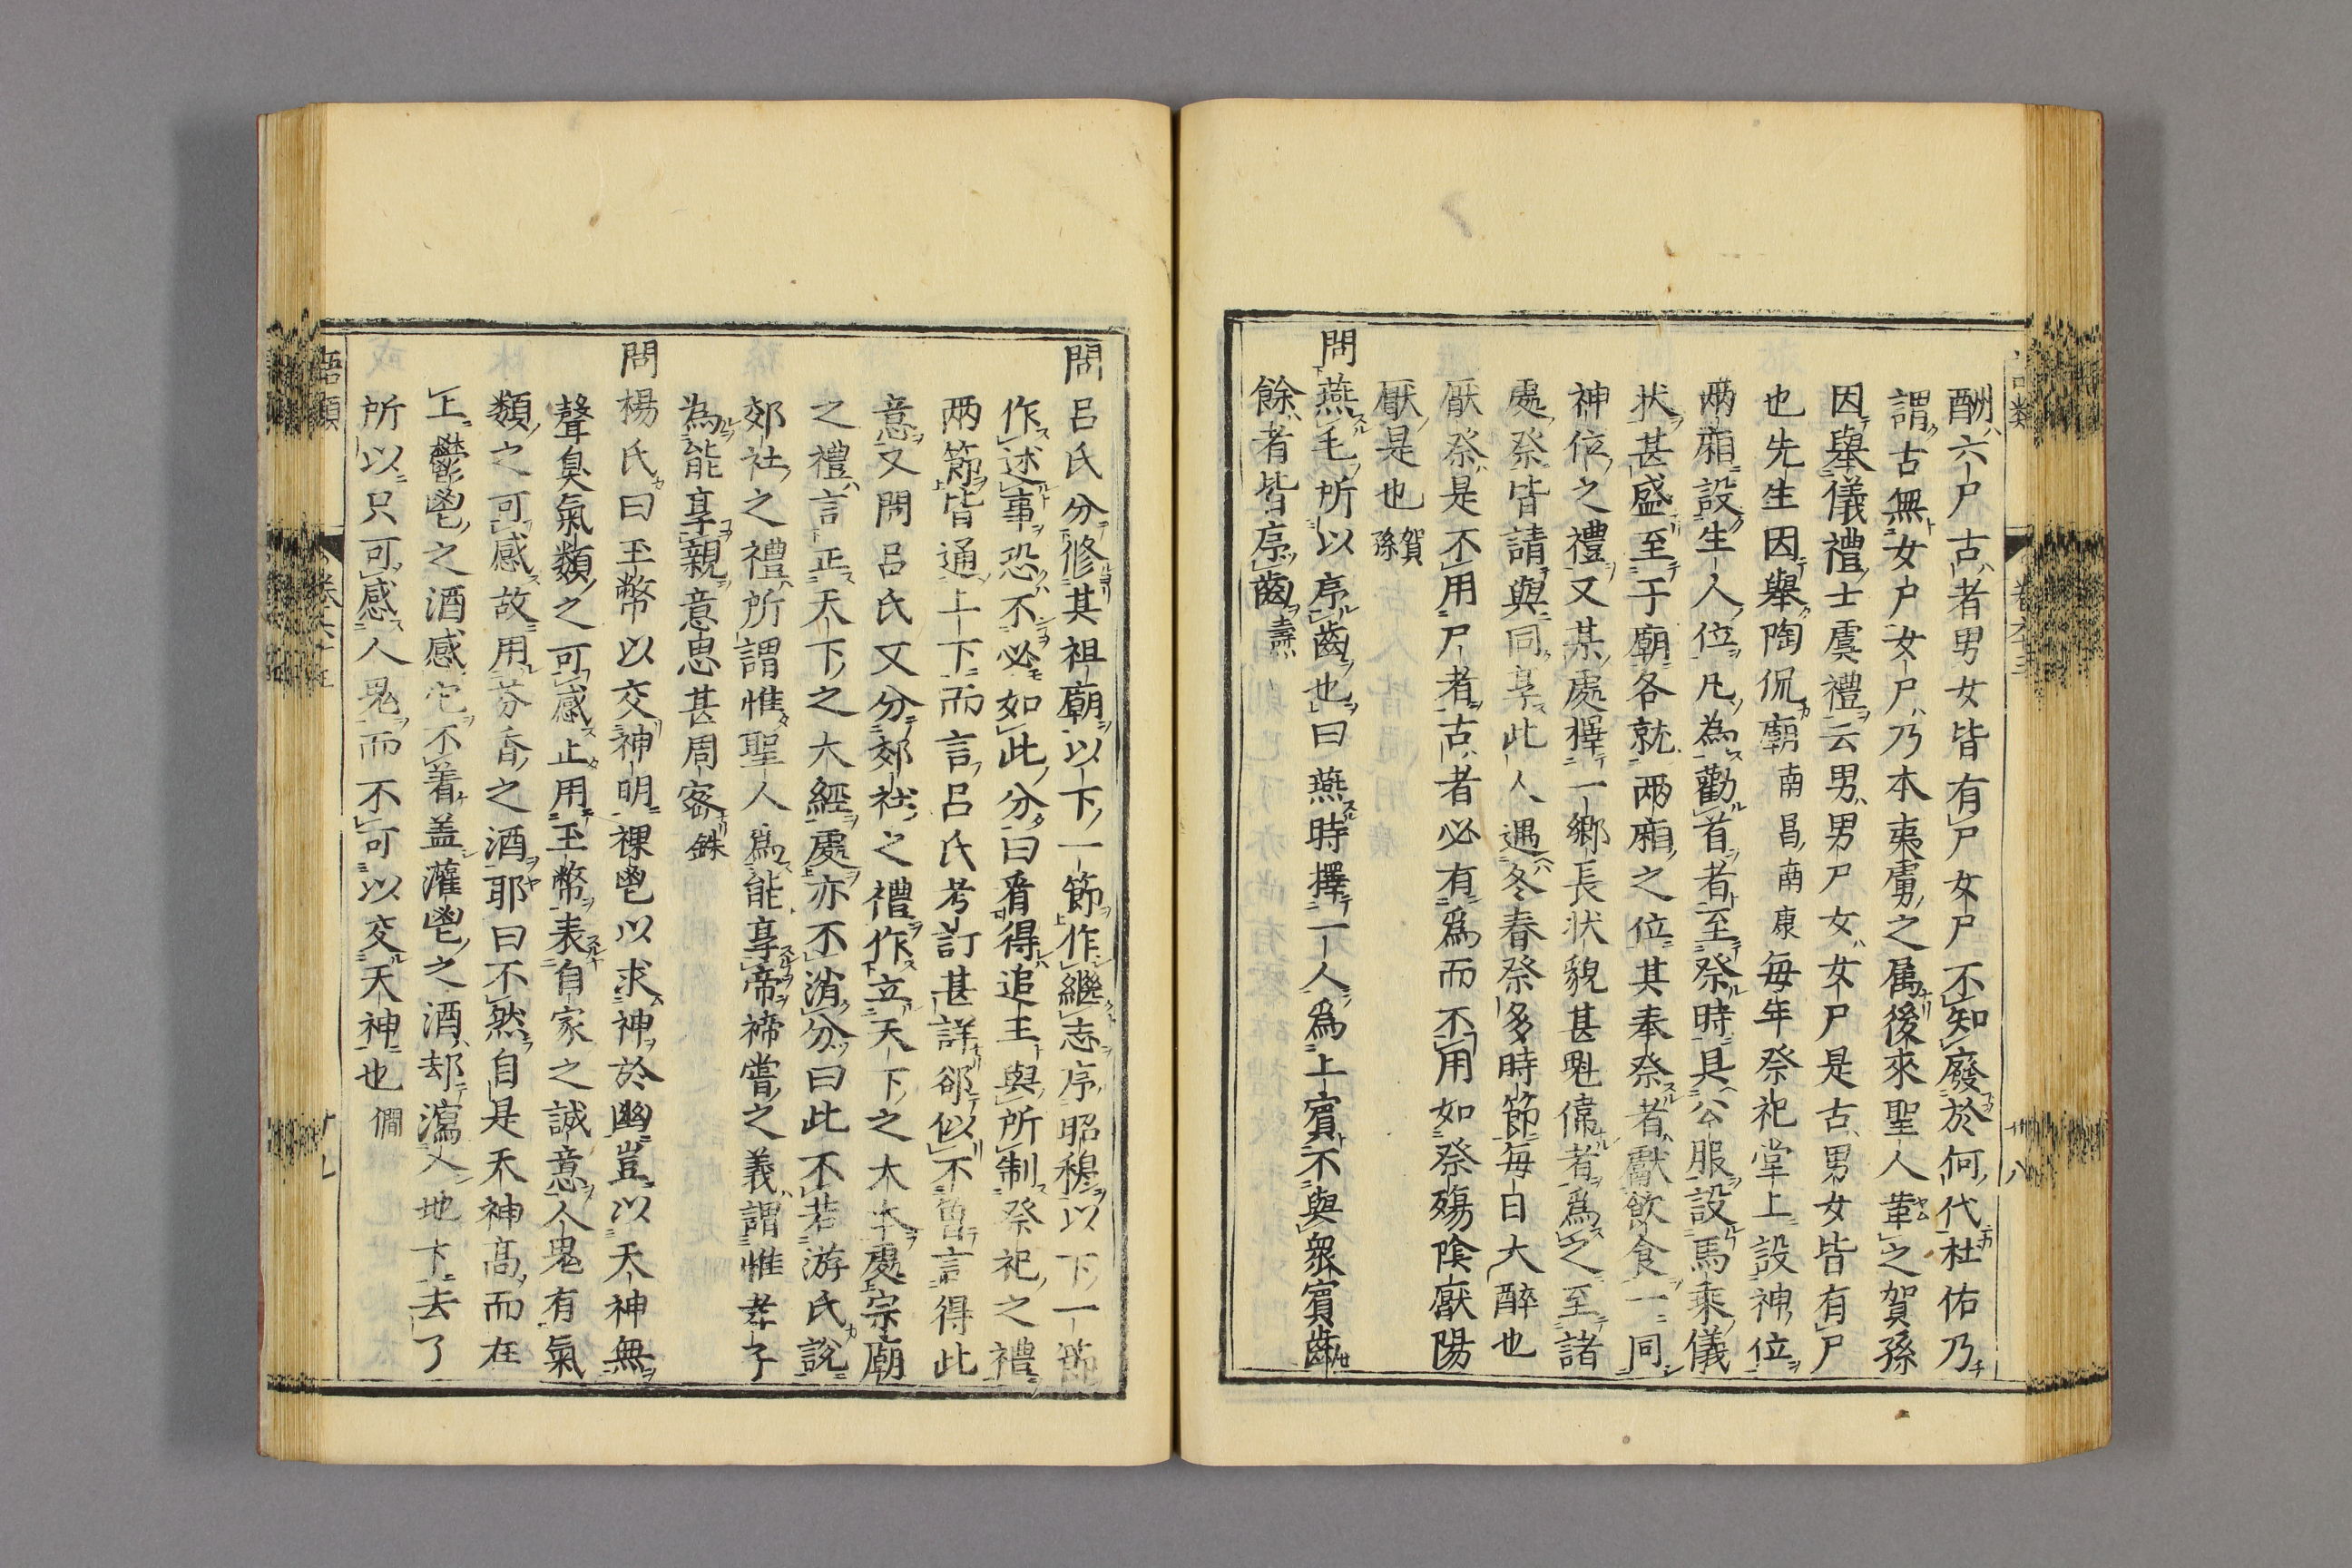 酬六尸古者男女皆有尸女尸不知廢於何代杜佑乃
謂古無女尸女尸乃本夷虜之属後來聖人革之賀孫
因舉儀禮士虞禮云男男尸女女尸是古男女皆有尸
也先生因舉陶侃廟南昌南康每年祭祀堂上設神位
兩廂設生人位凡為勸首者至祭時具公服設馬乘儀
状甚盛至于廟各就兩廂之位其奉祭者獻飲食一同
神位之禮又某處擇一鄉長状貌甚魁偉者爲之至諸
處祭皆請與同享此人遇冬春祭多時節每日大醉也
厭祭是不用尸者古者必有爲而不用如祭殤陰厭陽
厭是也賀孫
問燕毛所以序齒也曰燕時擇一人爲上賓不與衆賓齒
餘者皆序齒壽
卷六十三
十八
問呂氏分修其祖廟以下一節作繼志序昭穆以下一節
作述事恐不必如此分曰看得追王與所制祭祀之禮
两節皆通上下而言呂氏考訂甚詳郤似不曾言得此
意又問呂氏又分郊社之禮作立天下之大本處宗廟
之禮言正天下之大經處亦不消分曰此不若游氏說
郊社之禮所謂惟聖人爲能享帝禘嘗之義謂惟孝子
為能享親意思甚周密銖
問楊氏曰玉幣以交神明祼鬯以求神於幽豈以天神無
聲臭氣類之可感止用玉幣表自家之誠意人鬼有氣
類之可感故用芬香之酒耶曰不然自是天神高而在
上鬱鬯之酒感它不着盖灌鬯之酒却瀉入地下去了
所以只可感人鬼而不可以交天神也僩
語類
卷六十三
十九